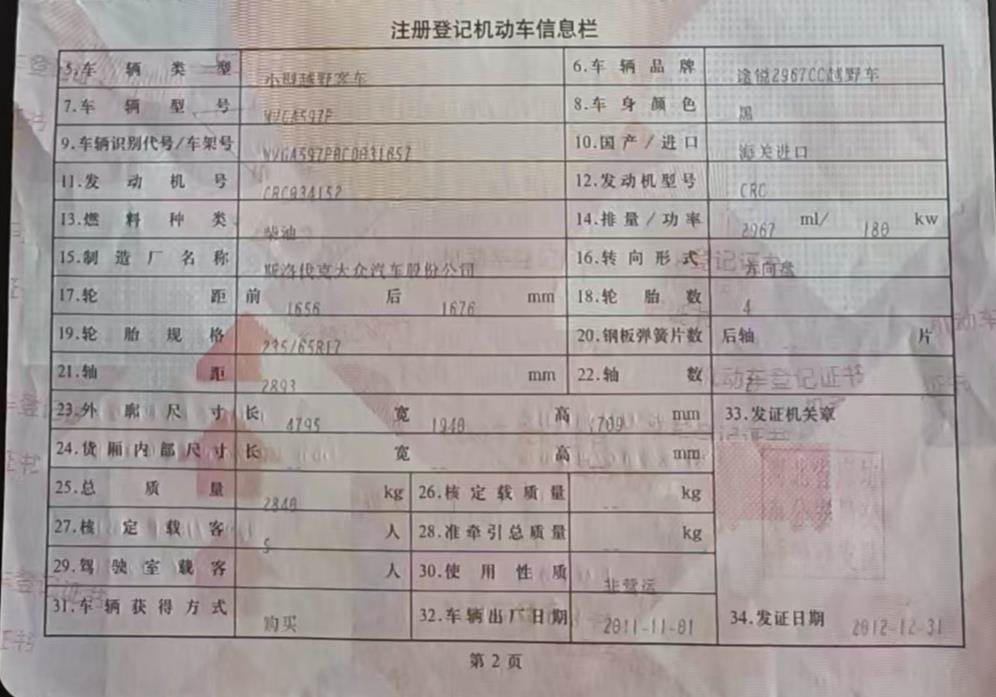 注册登记机动车信息栏
5.车辆类型 小型越野客车 6.车辆品牌 途锐2967CC越野车
7.车辆型号 8.车身颜色 黑
9.车辆识别代号/车架号 10.国产/进口 海关进口
11.发动机号 12.发动机型号 CRC
13.燃料种类 柴油 14.排量/功率 2967 ml/ 180 kw
15.制造厂名称 斯洛伐克大众汽车股份公司 16.转向形式 方向盘
17.轮距 前 1656 后 1676 mm 18.轮胎数 4
19.轮胎规格 235/65R17 20.钢板弹簧片数 后轴 片
21.轴距 2893 mm 22.轴数
23.外廓尺寸 长 4795 宽 1940 高 1709 mm 33.发证机关章
24.货厢内部尺寸 长 -- 宽 -- 高 -- mm
25.总质量 2840 kg 26.核定载质量 -- kg
27.核定载客 5 人 28.准牵引总质量 -- kg
29.驾驶室载客 人 30.使用性质 非营运
31.车辆获得方式 购买 32.车辆出厂日期 2011-11-01 34.发证日期 2012-12-31
第2页